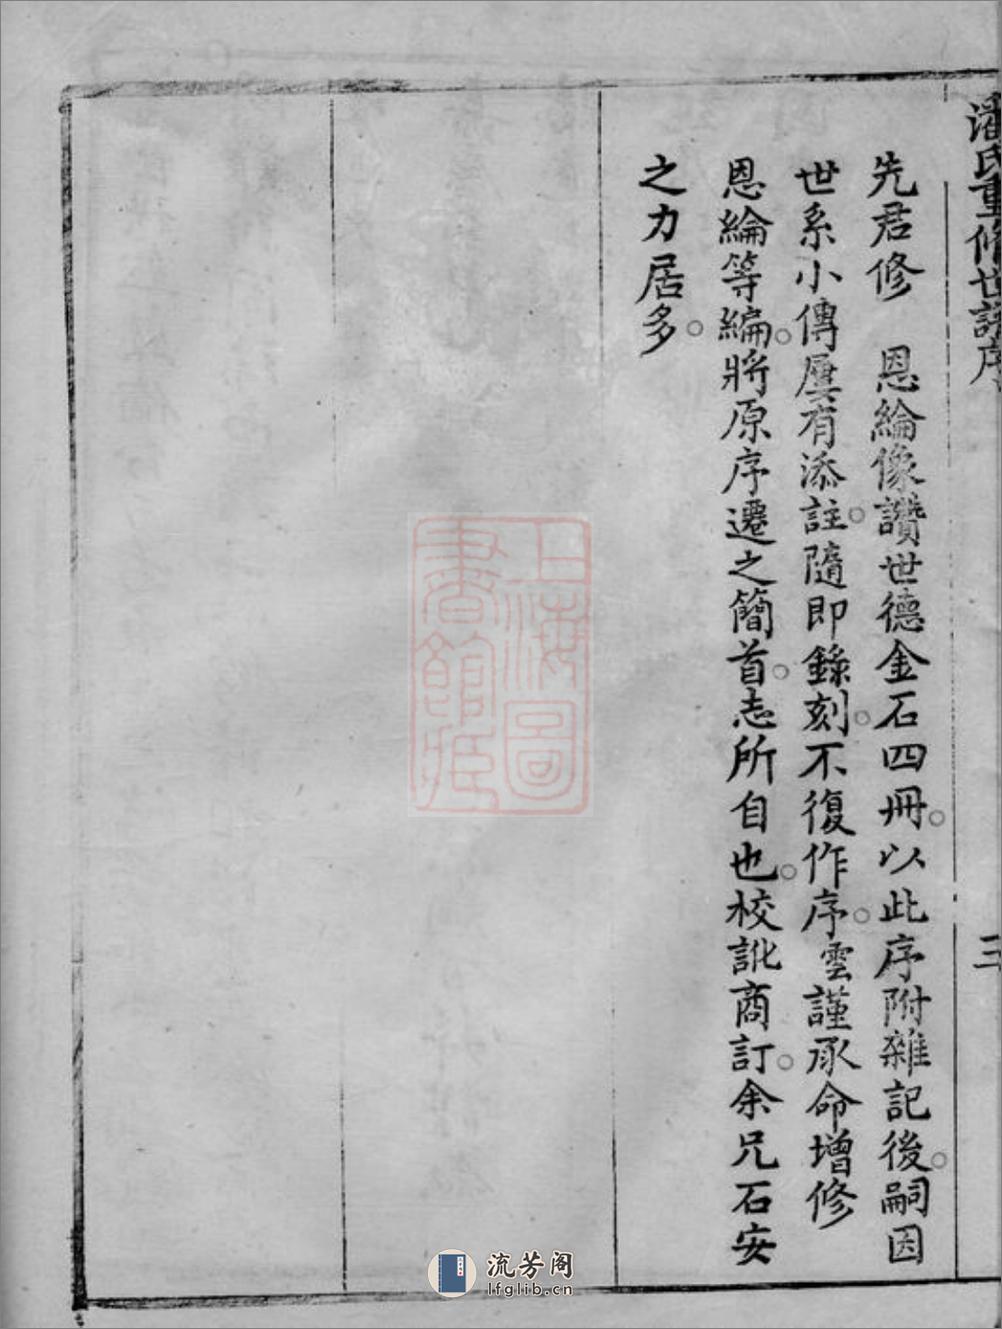 潘氏重修世譜序
三
先君修　恩綸像讚世德金石四冊。以此序附雜記後。嗣因
世系小傳屢有添註。隨即錄刻。不復作序。雲謹承命增修
恩綸等編。將原序遷之簡首。志所自也。校訛商訂。余兄石安
之力居多。
上海圖
書館藏
流芳阁
lfglib.cn